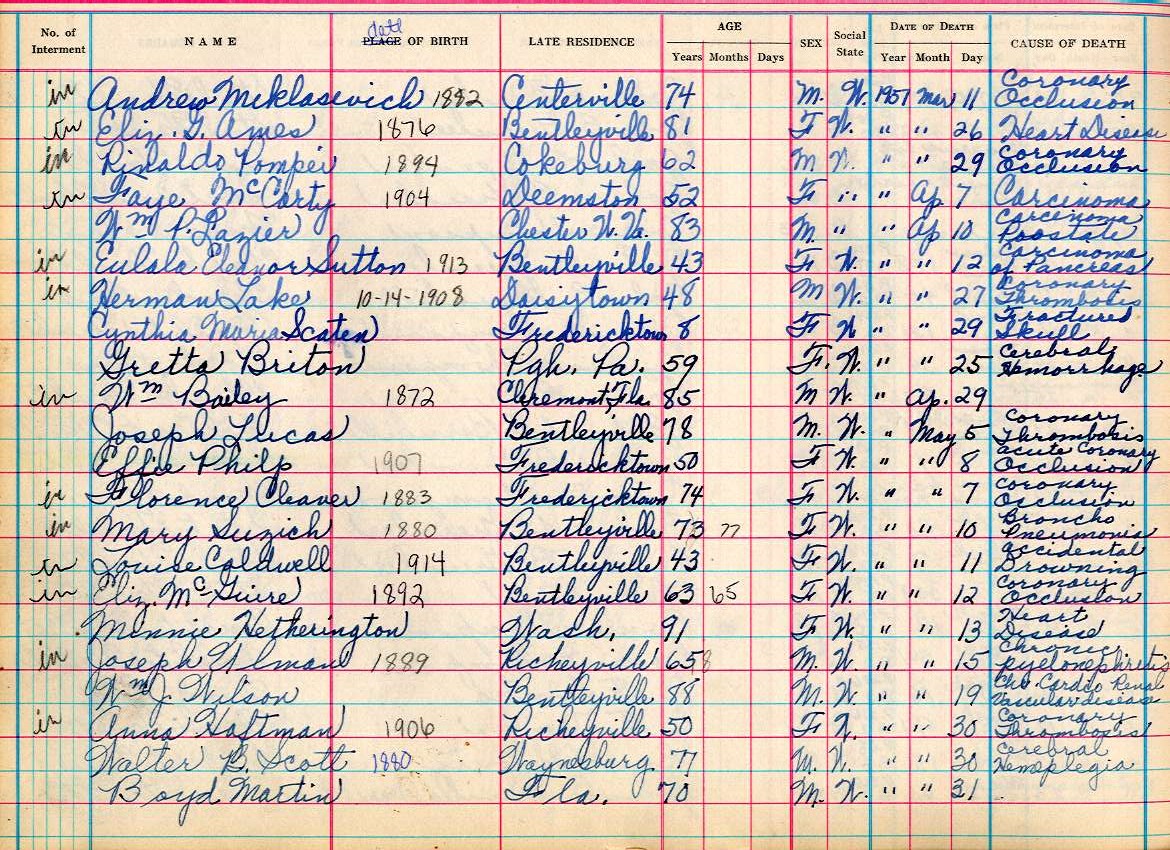 No. of Interment NAME date PLACE OF BIRTH LATE RESIDENCE AGE Years Months Days SEX Social State DATE OF DEATH Year Month Day CAUSE OF DEATH
in Andrew Meklasevich 1882 Centerville 74 M. W. 1957 Mar 11 Coronary Occlusion
in Eliz. G. Ames 1876 Bentleyville 81 F W. " " 26 Heart Disease
in Rinaldo Pompei 1894 Cokeburg 62 M W. " " 29 Coronary Occlusion
in Faye McCarty 1904 Deemston 52 F " " Ap 7 Carcinoma
Wm P. Lazier Chester W. Va. 83 M " " Ap 10 Carcinoma Prostate
in Eulala Eleanor Sutton 1913 Bentleyville 43 F W. " " 12 Carcinoma of Pancreas
in Herman Lake 10-14-1908 Daisytown 48 M W. " " 27 Coronary Thrombosis
Cynthia Maria Scaten Fredericktown 8 F W " " 29 Fractured Skull
Gretta Briton Pgh. Pa. 59 F. W. " " 25 Cerebral Hemorrhage
in Wm Bailey 1872 Cleremont Fla. 85 M W. " Ap. 29
Joseph Lucas Bentleyville 78 M. W. " May 5 Coronary Thrombosis
Effie Philp 1907 Fredericktown 50 F W. " " 8 acute Coronary Occlusion
in Florence Cleaver 1883 Fredericktown 74 F W. " " 7 Coronary Occlusion
in Mary Suzich 1880 Bentleyville 73 77 F W. " " 10 Broncho Pneumonia
in Louise Caldwell 1914 Bentleyville 43 F W. " " 11 accidental Drowning
in Eliz. McGuire 1892 Bentleyville 63 65 F W. " " 12 Coronary Occlusion
Minnie Hetherington Wash. 91 F W. " " 13 Heart Disease
in Joseph Ulman 1889 Richeyville 658 M. W. " " 15 Chronic pyelonephritis
Wm J. Wilson Bentleyville 88 M. W. " " 19 Chr. Cardio Renal Vascular disease
in Anna Haftman 1906 Richeyville 50 F W. " " 30 Coronary Thrombosis
Walter B. Scott 1880 Waynesburg 77 M. W. " " 30 Cerebral Hemeplegia
Boyd Martin Fla. 70 M. W. " " 31